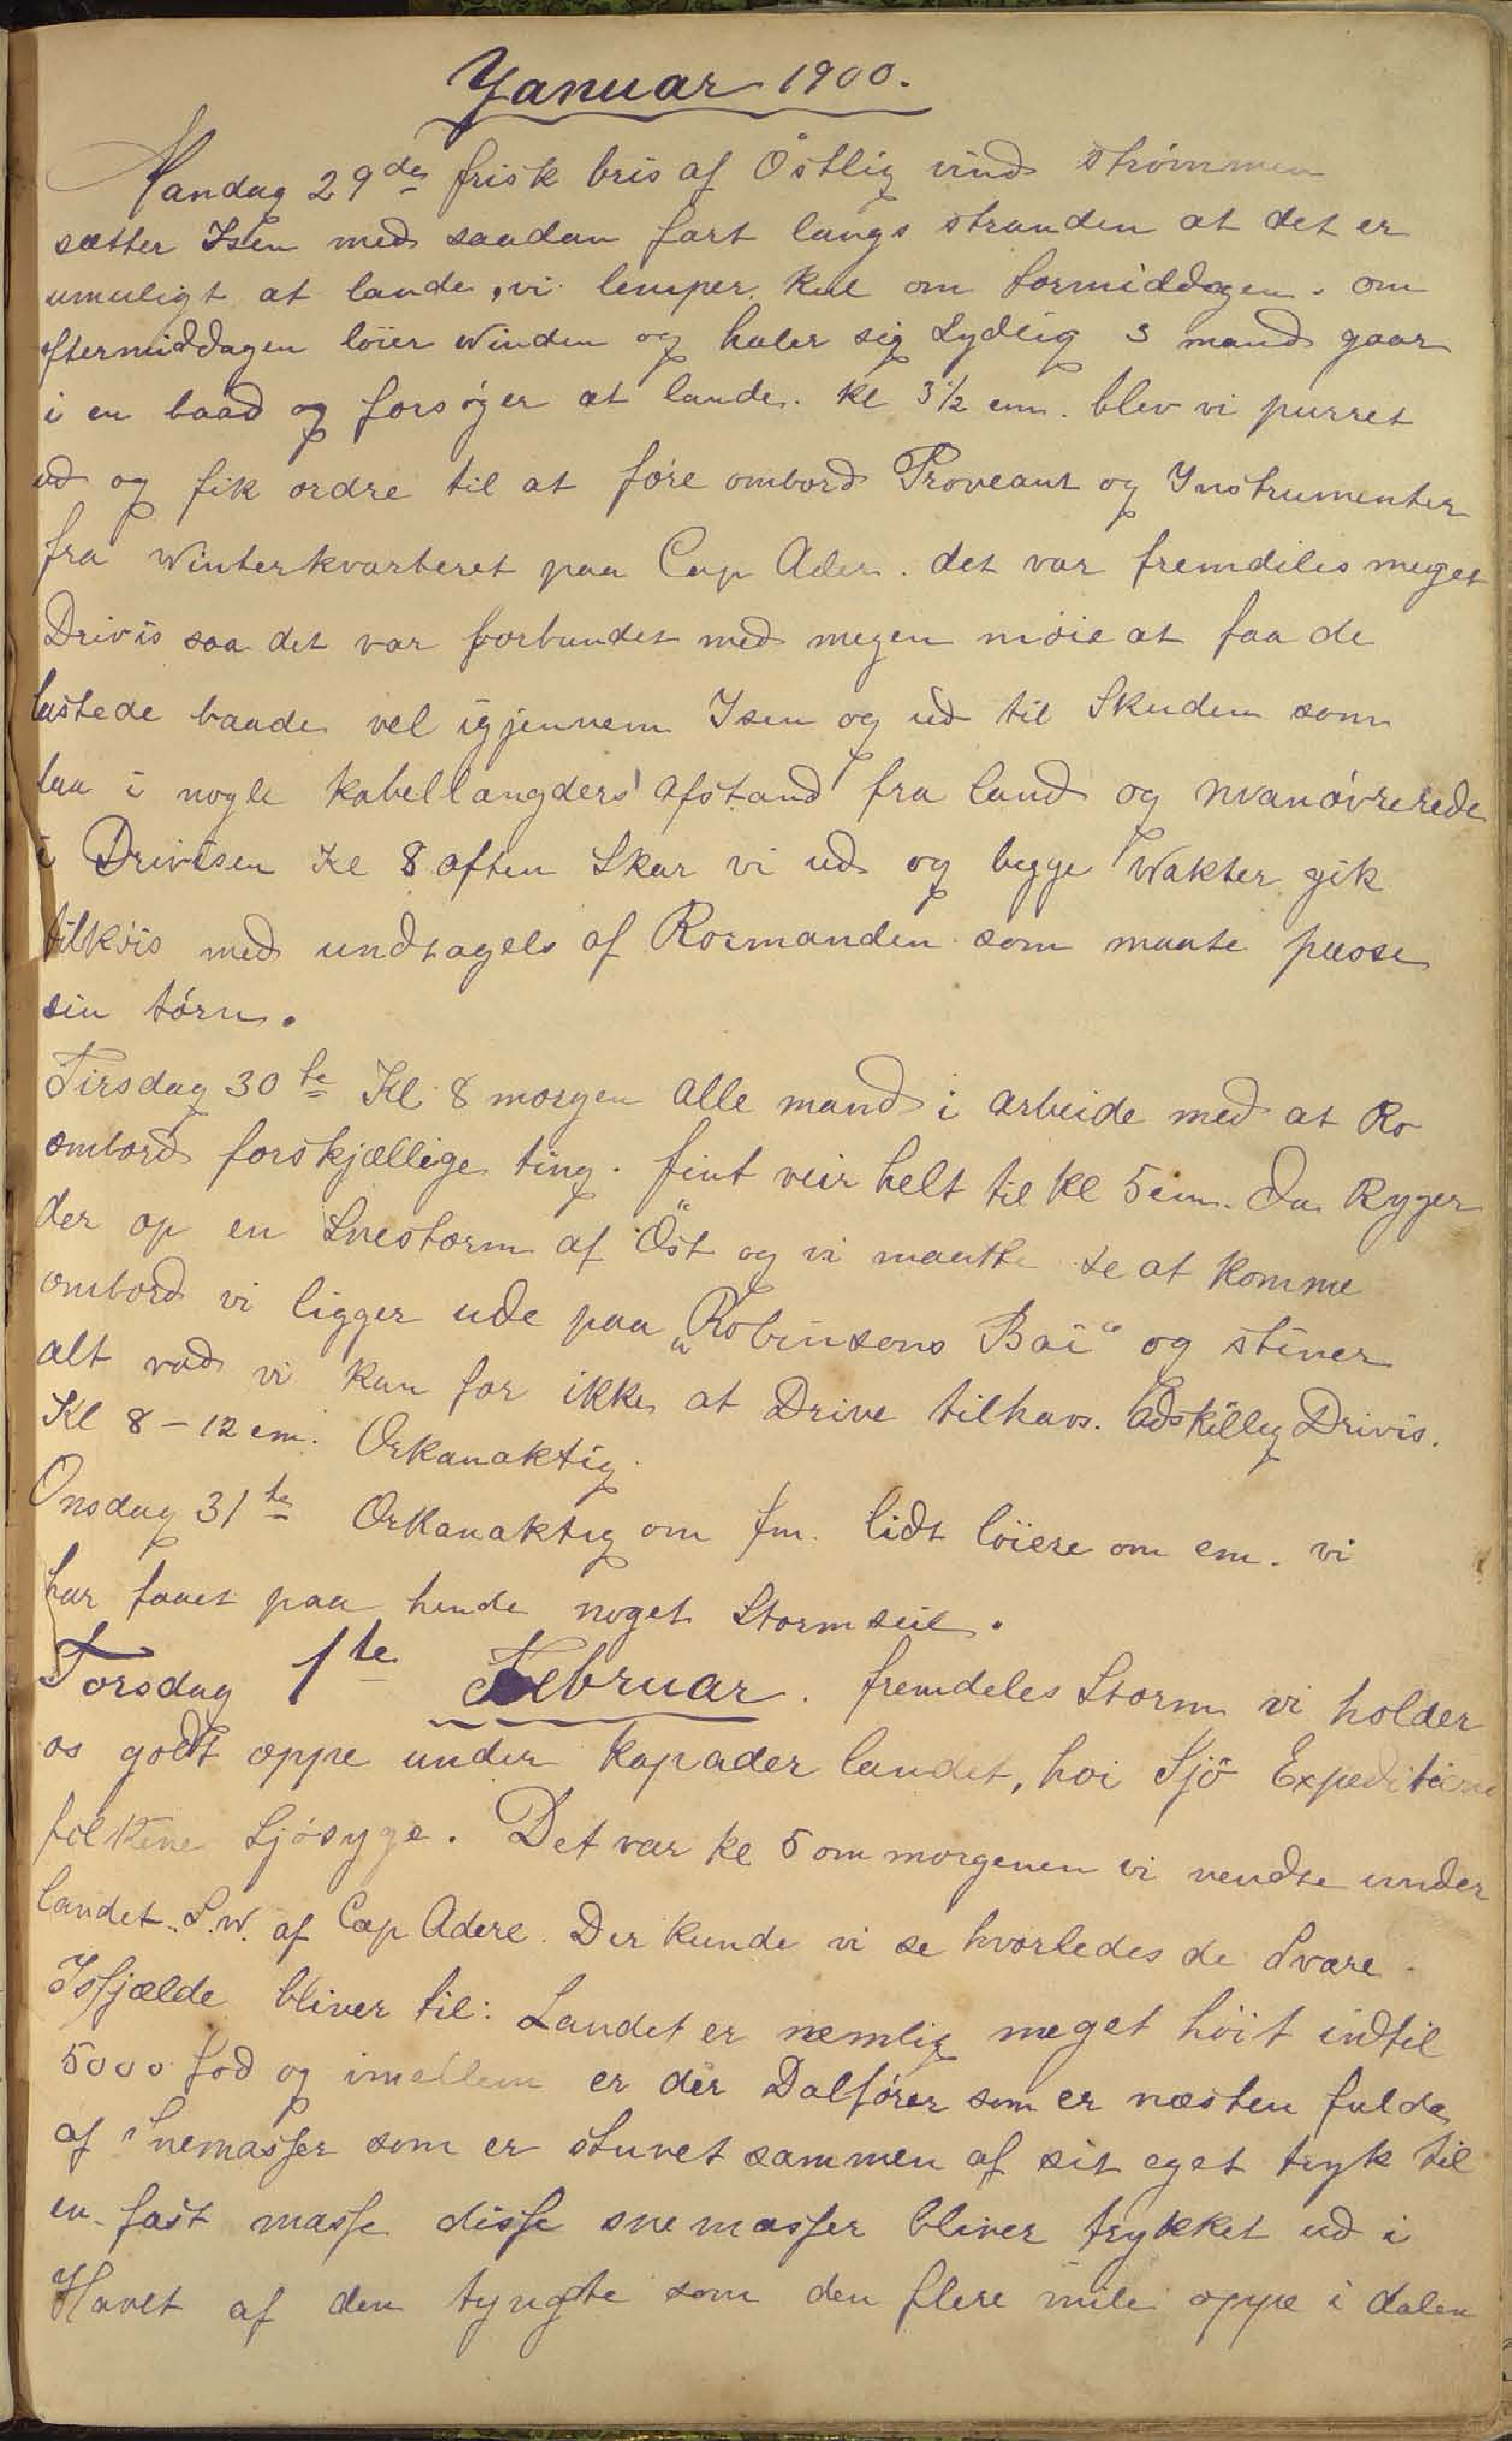 Januar 1900.
Mandag 29de frisk bris af Östlig vind strömmen
sætter Isen med saadan fart langs stranden at det er
umuligt at lande, vi lemper kul om formiddagen. om
eftermiddagen löier Winden og haler sig Sydlig 3 mand gaar
i en baad og forsøger at lande. Kl 3½ em. blev vi purret
ud og fik ordre til at före ombord Proveant og Instrumenter
fra Winterkvarteret paa Cap Ader. det var fremdiles meget
Drivis saa det var forbundet med megen möie at faa de
lastede baade vel igjennem Isen og ud til Skuden som
laa i nogle kabellangders afstand fra land og manövrerede
i Drivisen Kl 8 aften Skar vi ud og begge Wakter gik
tilköis med undtagels af Rormanden som maate passe
sin törn.
Tirsdag 30te Kl 8 morgen alle mand i arbeide med at Ro
ombord forskjællige ting. fint veir helt til kl 5 em. Da Ryger
der op en Snestorm af Öst og vi maatte se at komme
ombord vi ligger ude paa „Robinsons Bai“ og stiner
alt vad vi kan for ikke at Drive tilhavs. adskillig Drivis.
Kl 8 – 12 em. Orkanaktig.
Onsdag 31te Orkanaktig om fm. lidt löiere om em. vi
har faaet paa hende noget Stormseil.
Torsdag 1te Februar. fremdeles Storm vi holder
os godt oppe under kapader landet, hoi Sjö Expeditions
folkene Sjösyge. Det var kl 5 om morgenen vi vendte under
landet S.W. af Cap Adere. Der kunde vi se hvorledes de Svære
Isfjælde bliver til: Landet er nemlig meget höit indtil
5000 fod og imellem er der Dalförer som er næsten fulde
af Snemasser som er stuvet sammen af sit eget tryk til
en fast masse disse snemasser bliver trykket ud i
Havet af den tyngte som den flere mile oppe i dalen